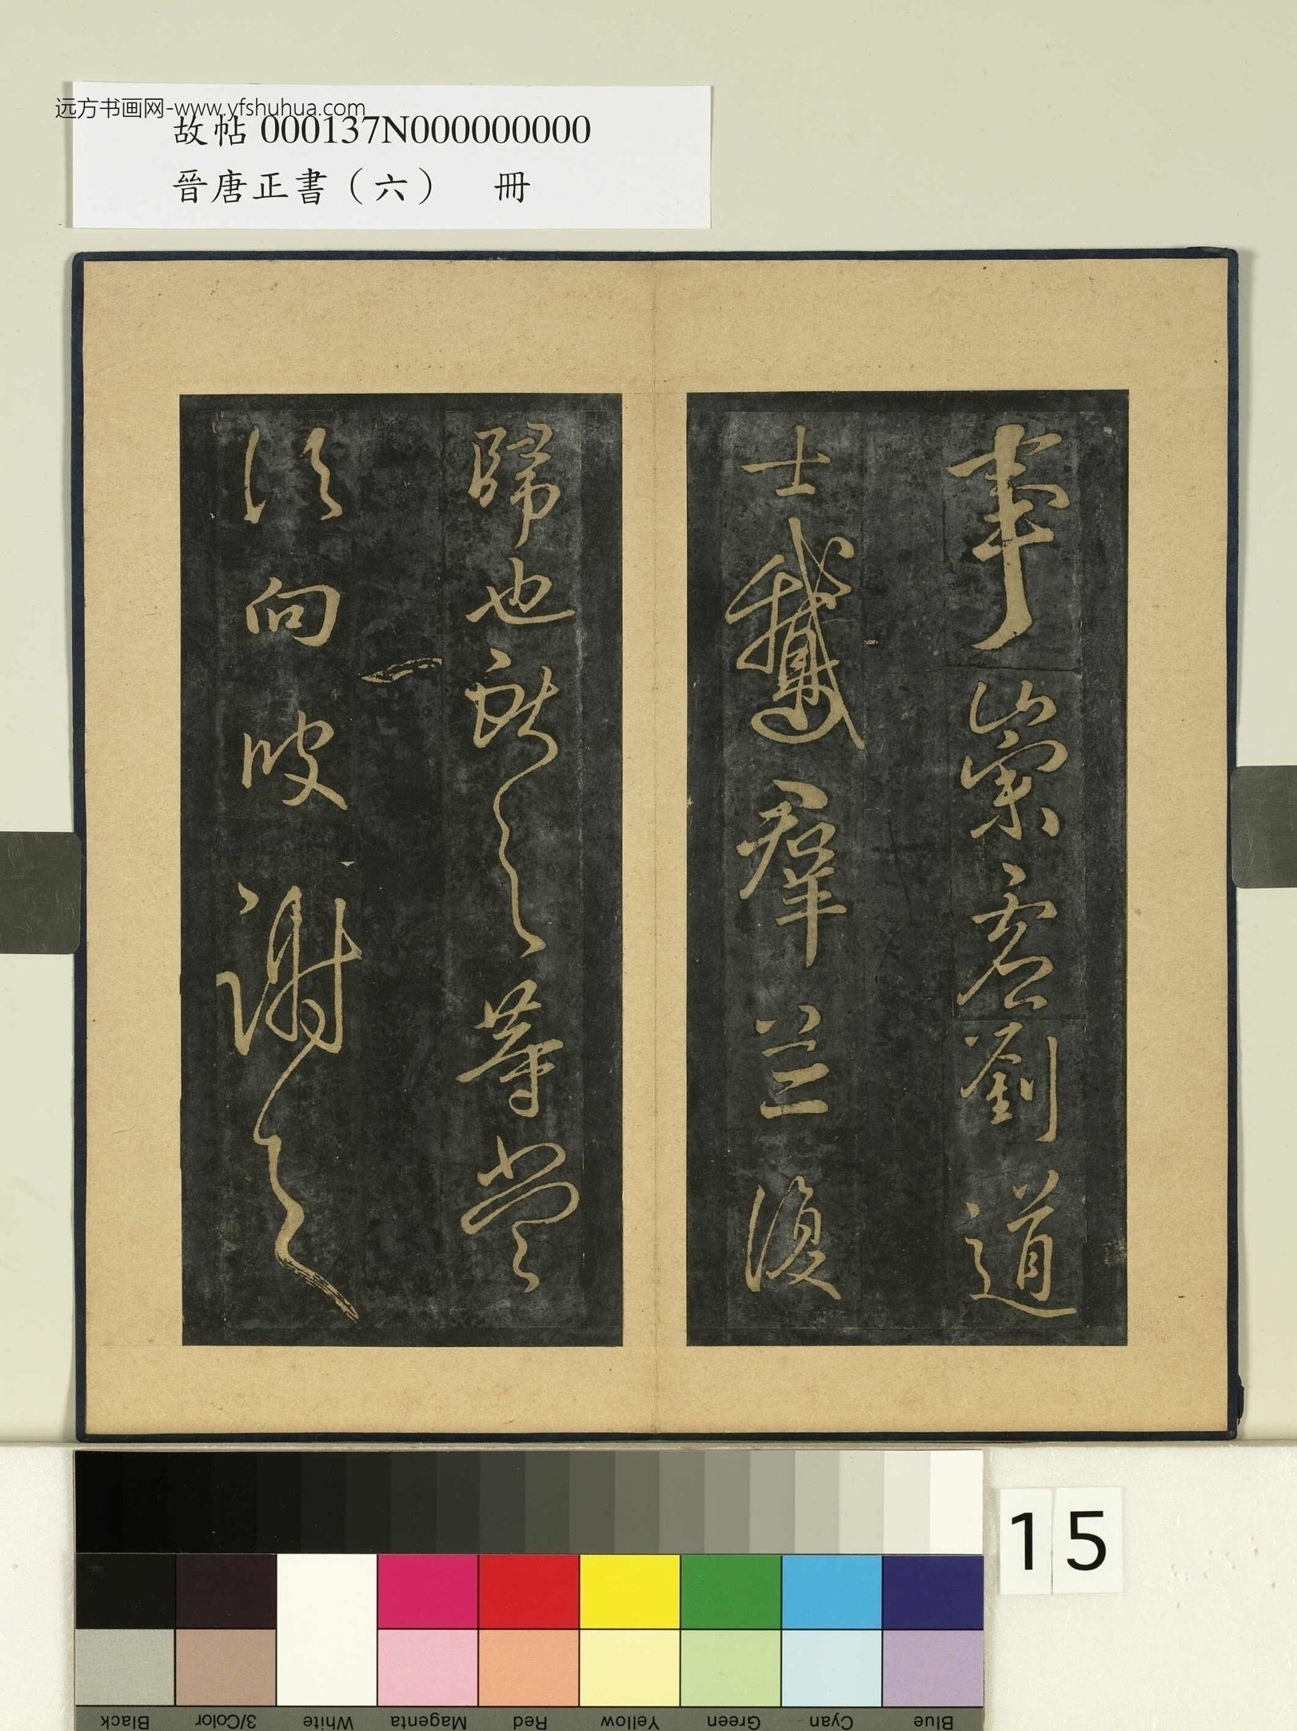 远方书画网-www.yfshuhua.com
故帖 000137N000000000
晉唐正書（六） 冊
事崇虛劉道
士鵝羣並復
歸也獻之等當
須向彼謝之
15
Blue Cyan Green Yellow Red Magenta White 3/Color Black